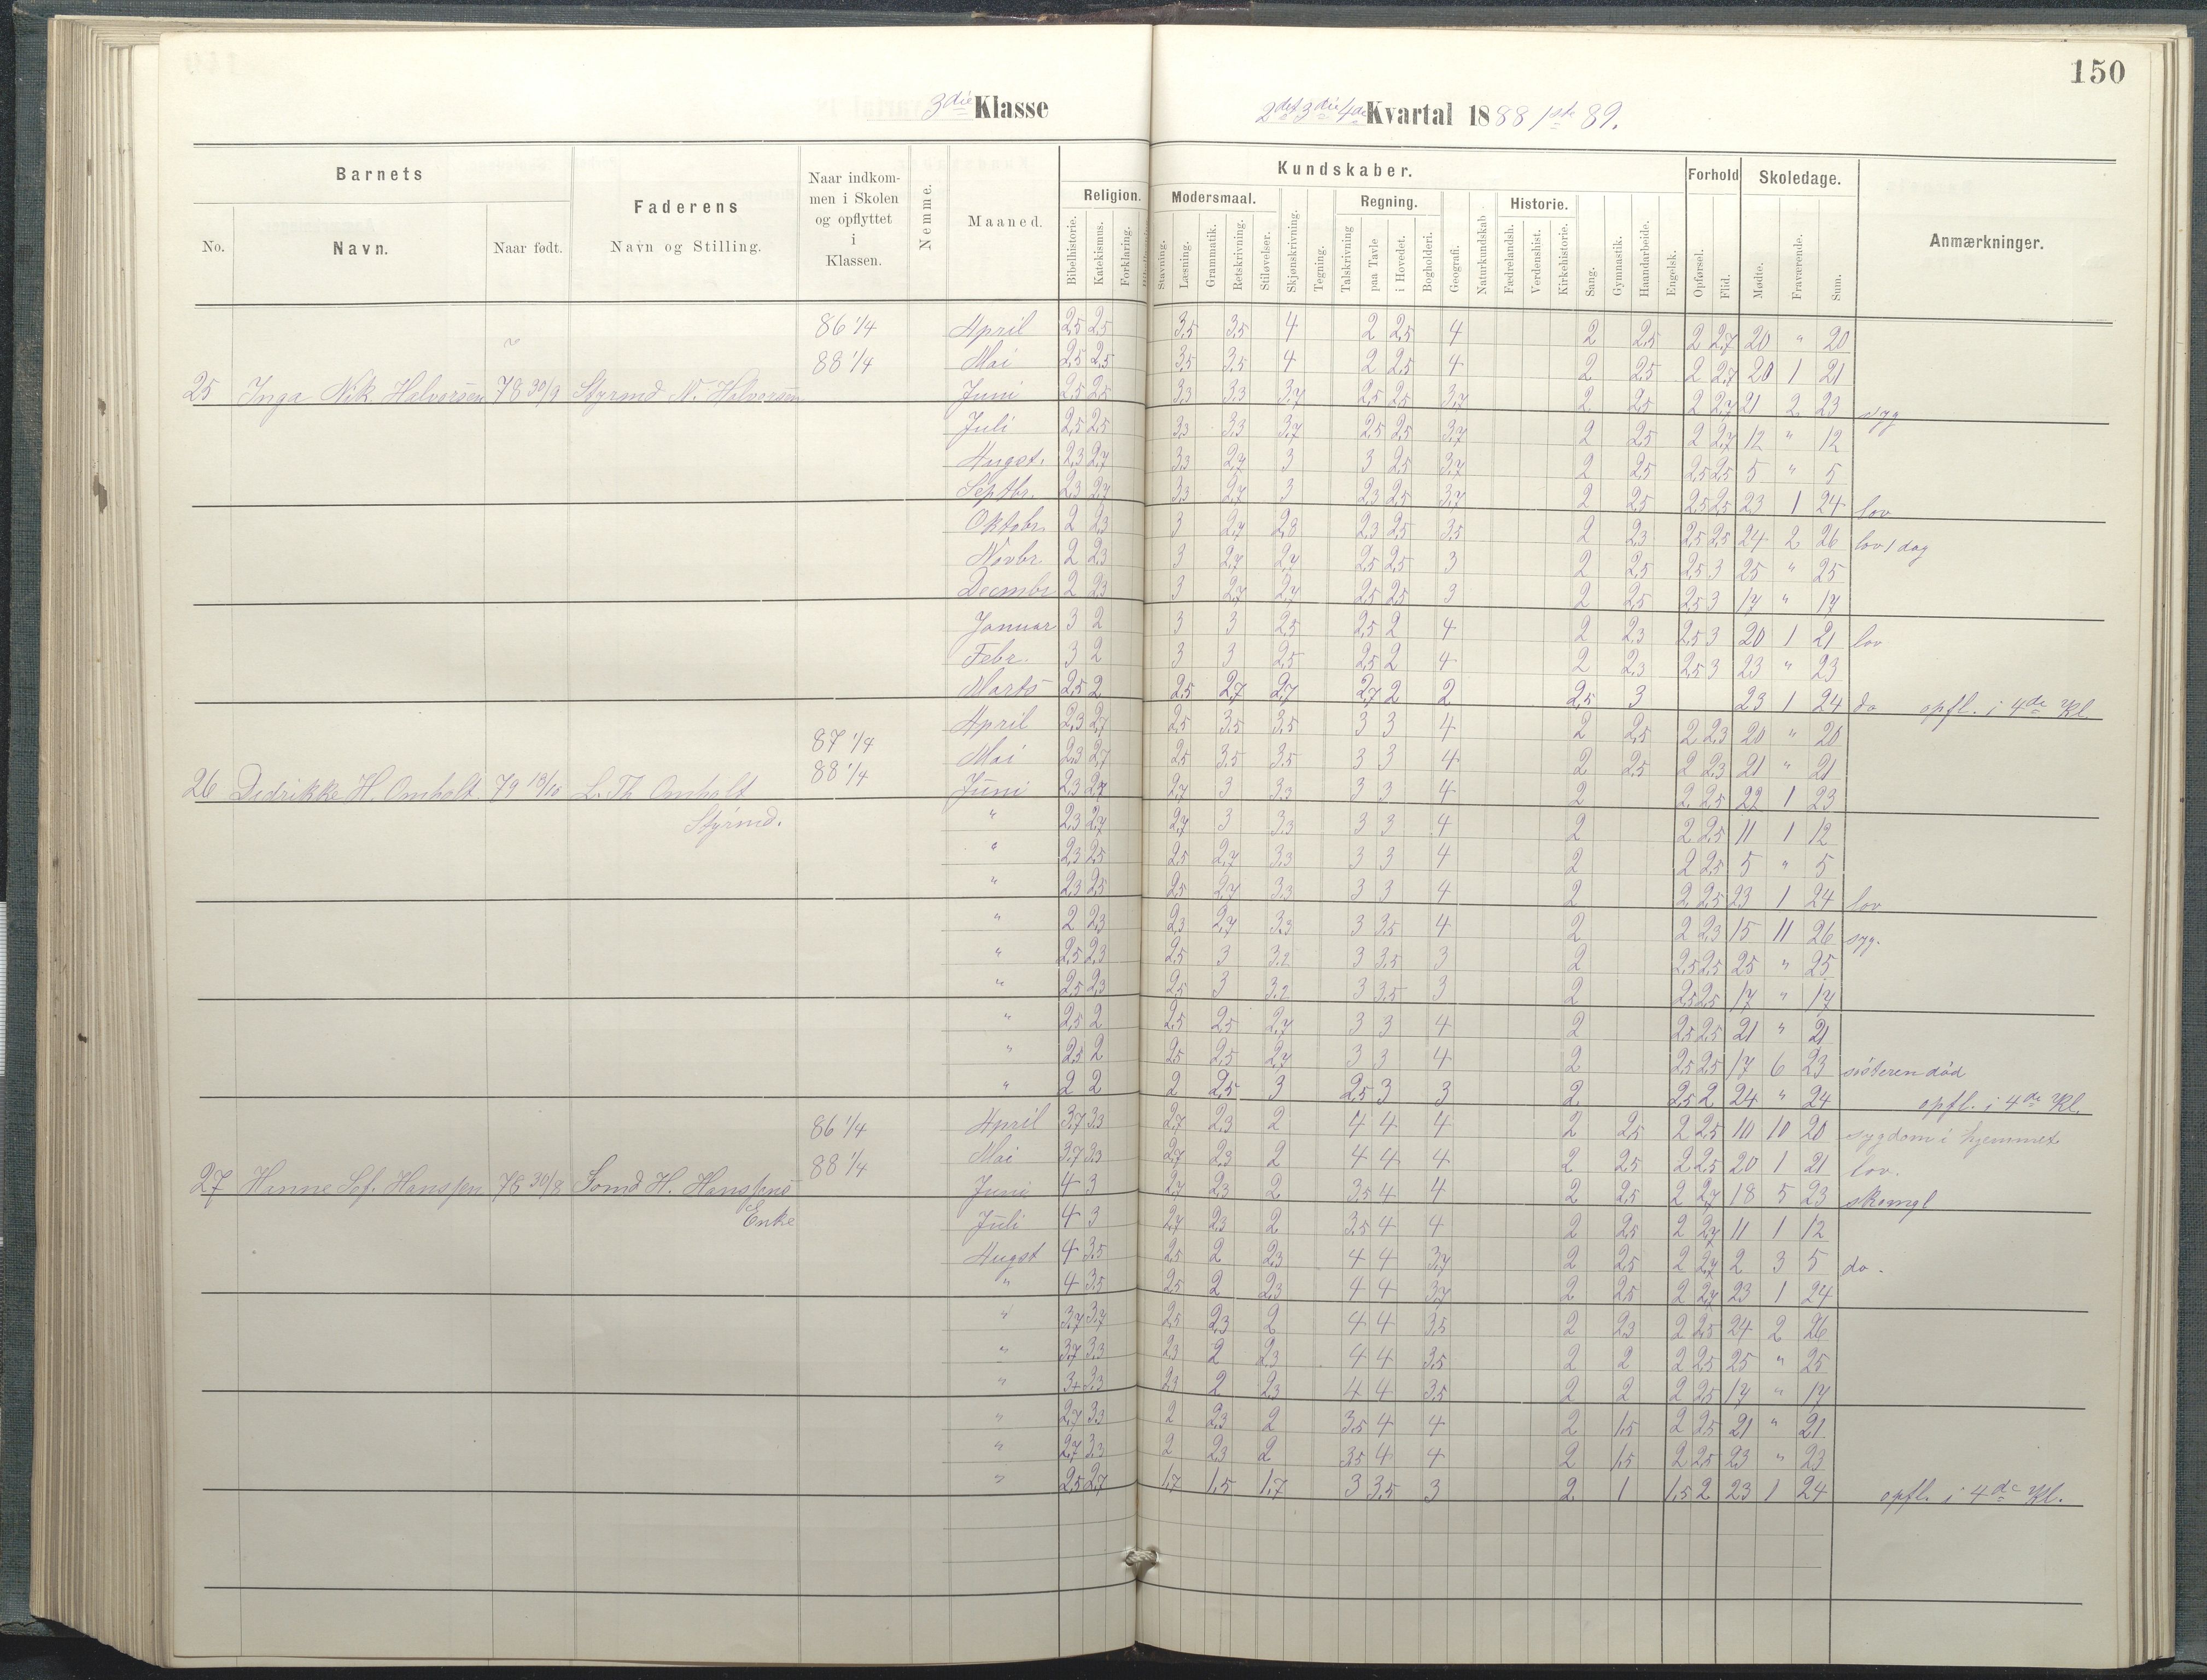 150
3die Klasse 2det 3die 4de Kvartal 1888 1ste 89.
Barnets
Faderens
Naar indkommen i Skolen og opflyttet i Klassen.
Nemme.
Maaned.
Kundskaber.
Forhold
Skoledage.
Anmærkninger.
Religion.
Modersmaal.
Regning.
Historie.
No.
Navn.
Naar født.
Navn og Stilling.
Bibelhistorie.
Katekismus.
Forklaring.
Stavning.
Læsning.
Grammatik.
Retskrivning.
Stiløvelser.
Skjønskrivning.
Tegning.
Talskrivning
paa Tavle
i Hovedet.
Bogholderi.
Geografi.
Naturkundskab.
Fædrelandsh.
Verdenshist.
Kirkehistorie.
Sang.
Gymnastik.
Haandarbeide.
Engelsk.
Opførsel.
Flid.
Mødte.
Fraværende.
Sum.
86 1/4 April 2,5 2,5 3,5 3,5 4 2 2,5 4 2 2,5 2 2,7 20 " 20
88 1/4 Mai 2,5 2,5 3,5 3,5 4 2 2,5 4 2 2,5 2 2,7 20 1 21
25 Inga Nik. Halvorsen 78 30/9 Styrmd N. Halvorsen Juni 2,5 2,5 3,3 3,3 3,7 2,5 2,5 3,7 2 2,5 2 2,7 21 2 23 syg
Juli 2,5 2,5 3,3 3,3 3,7 2,5 2,5 3,7 2 2,5 2 2,7 12 " 12
Augst. 2,3 2,7 3,3 2,7 3 3 2,5 3,7 2 2,5 2,5 2,5 5 " 5
Septbr. 2,3 2,7 3,3 2,7 3 2,3 2,5 3,7 2 2,5 2,5 2,5 23 1 24 lov
Oktobr. 2 2,3 3 2,7 2,8 2,3 2,5 3,5 2 2,3 2,5 2,5 24 2 26 lov 1 dag
Novbr. 2 2,3 3 2,7 2,7 2,5 2,5 3 2 2,5 2,5 3 25 " 25
Decmbr 2 2,3 3 2,7 2,7 2,5 2,5 3 2 2,5 2,5 3 17 " 17
Januar 3 2 3 3 2,5 2,5 2 4 2 2,3 2,5 3 20 1 21 lov
Febr. 3 2 3 3 2,5 2,5 2 4 2 2,3 2,5 3 23 " 23
Marts 2,5 2 2,5 2,7 2,7 2,7 2 2 2,5 3 23 1 24 do opfl. i 4de Kl.
April 2,3 2,7 2,5 3,5 3,5 3 3 4 2 2,5 2 2,3 20 " 20
87 1/4 Mai 2,3 2,7 2,5 3,5 3,5 3 3 4 2 2,5 2 2,3 21 " 21
88 1/4
26 Didrikke H. Omholt 79 13/10 L. Th. Omholt Juni 2,3 2,7 2,7 3 3,3 3 3 4 2 2 2,5 22 1 23
Styrmd. " 2,3 2,7 2,7 3 3,3 3 3 4 2 2 2,5 11 1 12
" 2,3 2,5 2,5 2,7 3,3 3 3 4 2 2 2,5 5 " 5
" 2,3 2,5 2,5 2,7 3,3 3 3 4 2 2 2,5 23 1 24 lov
" 2 2,3 2,3 2,7 3,3 3 3,5 4 2 2 2,3 15 11 26 syg.
" 2,5 2,3 2,5 3 3,2 3 3,5 3 2 2,5 2,5 25 " 25
" 2,5 2,3 2,5 3 3,2 3 3,5 3 2 2,5 2,5 17 " 17
" 2,5 2 2,5 2,5 2,7 3 3 4 2 2,5 2,5 21 " 21
" 2,5 2 2,5 2,5 2,7 3 3 4 2 2,5 2,5 17 6 23 sösteren död
" 2 2 2 2,5 3 2,5 3 3 2 2,5 2 24 " 24 opfl. i 4de Kl.
86 1/4 April 3,7 3,3 2,7 2,3 2 4 4 4 2 2,5 2 2,5 10 10 20 sygdom i hjemmet
88 1/4 Mai 3,7 3,3 2,7 2,3 2 4 4 4 2 2,5 2 2,5 20 1 21 lov.
27 Hanne Sof. Hanssen 78 30/8 Sömd H. Hanssens Juni 4 3 2,7 2,3 2 3,5 4 4 2 2,5 2 2,7 18 5 23 skomgl
Enke Juli 4 3 2,7 2,3 2 3,5 4 4 2 2,5 2 2,7 11 1 12
Augst 4 3,5 2,5 2 2,3 4 4 3,7 2 2,5 2 2,7 2 3 5 do.
" 4 3,5 2,5 2 2,3 4 4 3,7 2 2,5 2 2,7 23 1 24
" 3,7 3,7 2,5 2,3 2 4 4 3,5 2 2,3 2 2,5 24 2 26
" 3,7 3,3 2,3 2 2,3 4 4 3,5 2 2 2 2,5 25 " 25
" 3,7 3,3 2,3 2 2,3 4 4 3,5 2 2 2 2,5 17 " 17
" 2,7 3,3 2 2,3 2 3,5 4 4 2 1,5 2 2,5 21 " 21
" 2,7 3,3 2 2,3 2 3,5 4 4 2 1,5 2 2,5 23 " 23
" 2,5 2,7 1,7 1,5 1,7 3 3,5 3 2 1 1,5 2 23 1 24 opfl. i 4de Kl.